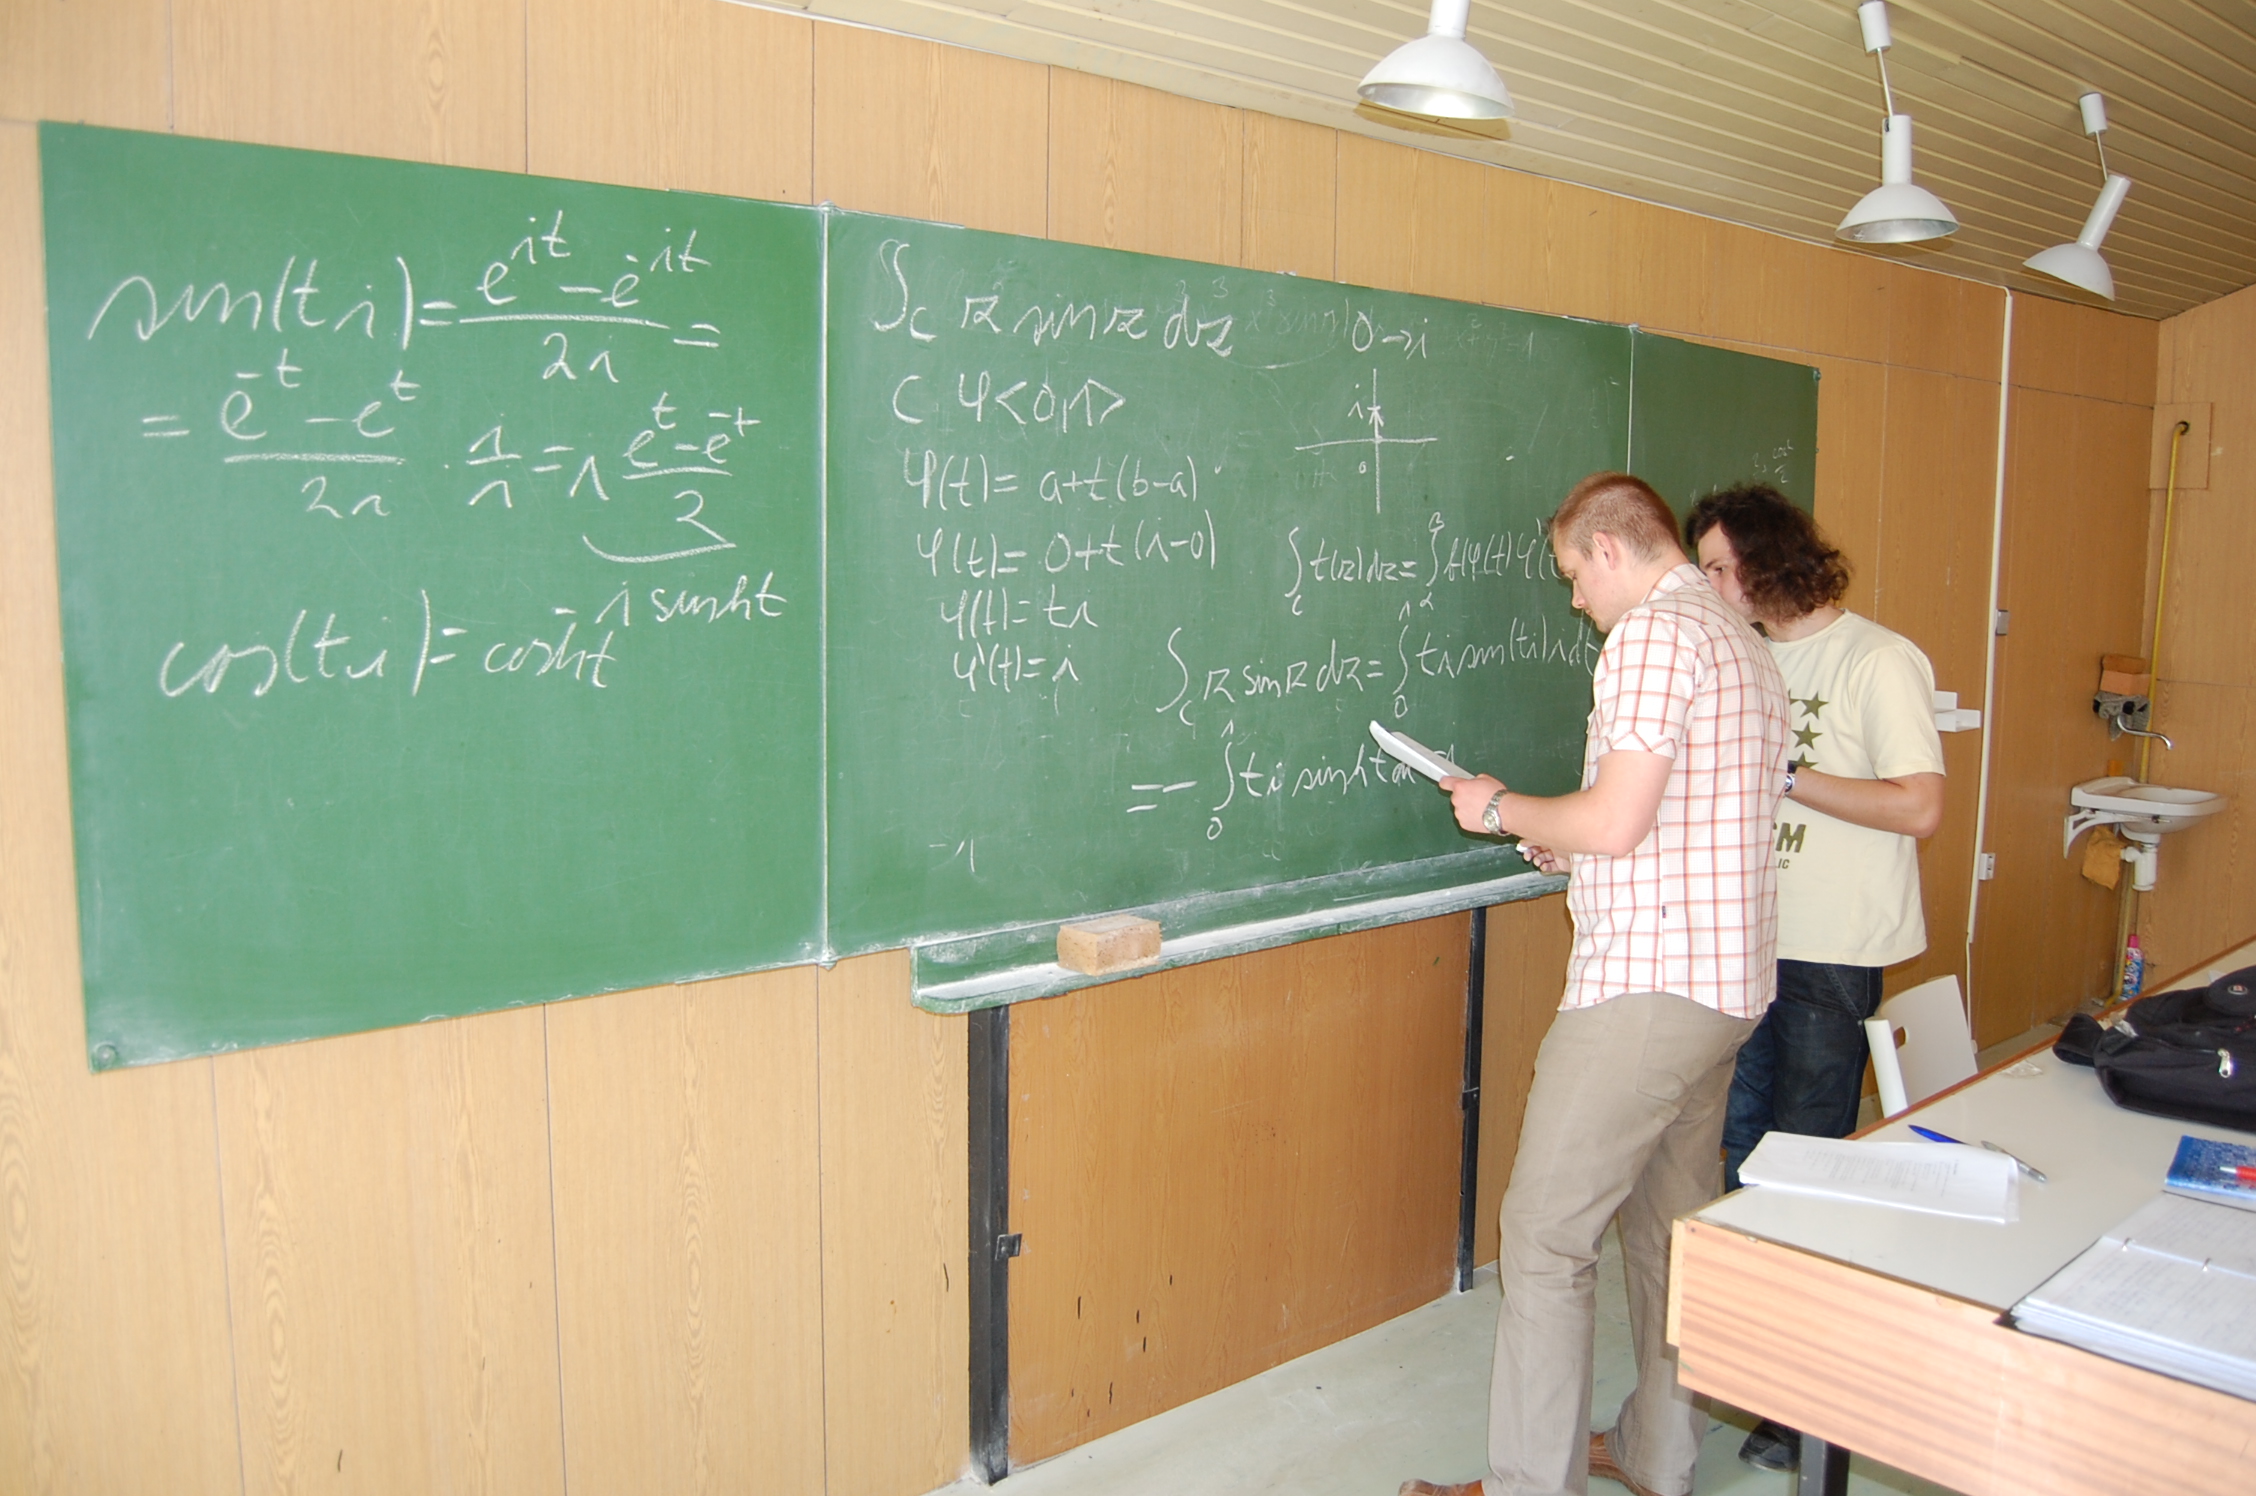 sin(ti) = (e^it - e^-it)/2i =
= (e^-t - e^t)/2i · i/i = i (e^t - e^-t)/2
= i sinht
cos(ti) = cosht
∫_C z sin z dz 0→i
C φ<0,1>
i
0
φ(t) = a+t(b-a)
φ(t) = 0+t(i-0)
φ(t) = ti
φ'(t) = i
∫_C f(z)dz = ∫_α^β f(φ(t)) φ'(t
∫_C z sin z dz = ∫_0^1 ti sin(ti) i dt
= - ∫_0^1 ti sinht d
-1
SM
IC